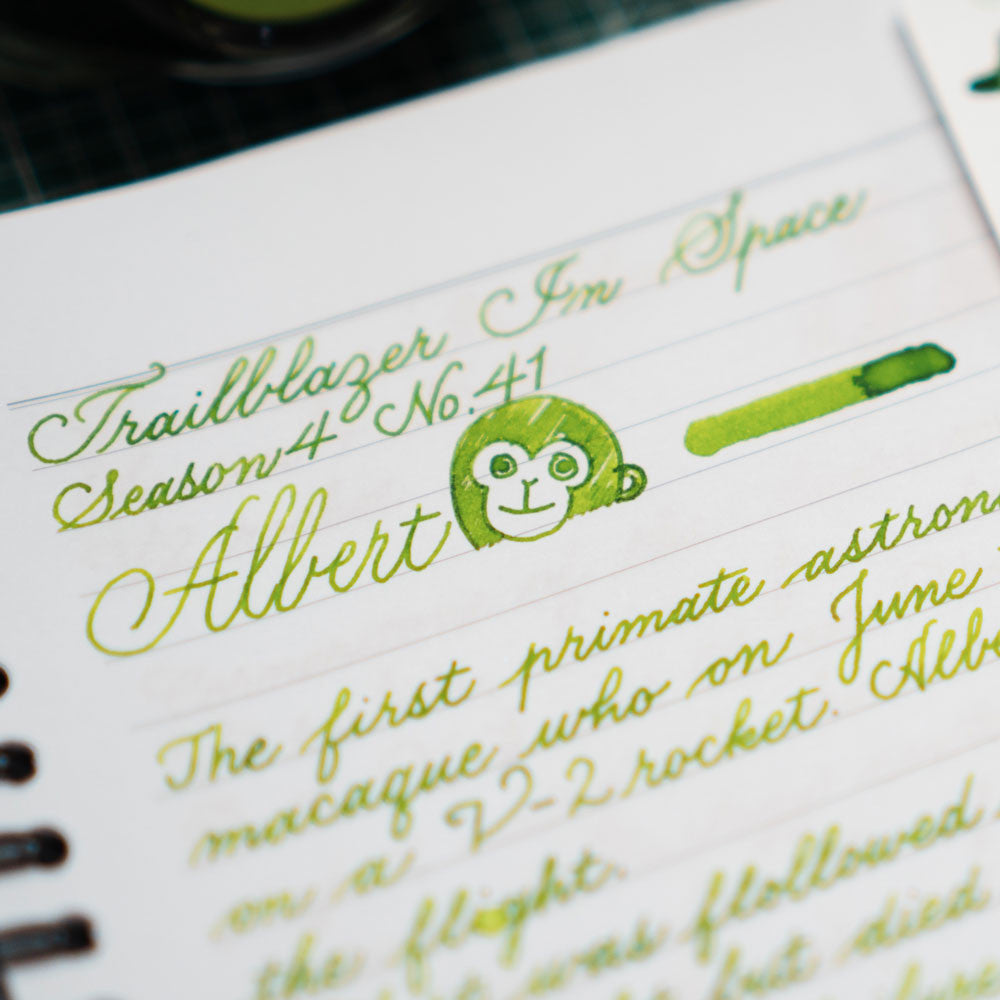 Trailblazer In Space
Season 4 No.41
Albert
The first primate astron
macaque who on June
on a V-2 rocket. Albe
the flight.
was flollowed
but died